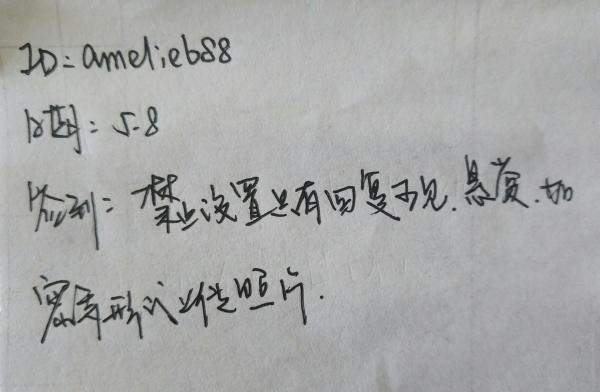 ID:amelieb88
日期:5.8
签到:禁止设置只有回复可见.悬赏.加
密等形式上传照片.